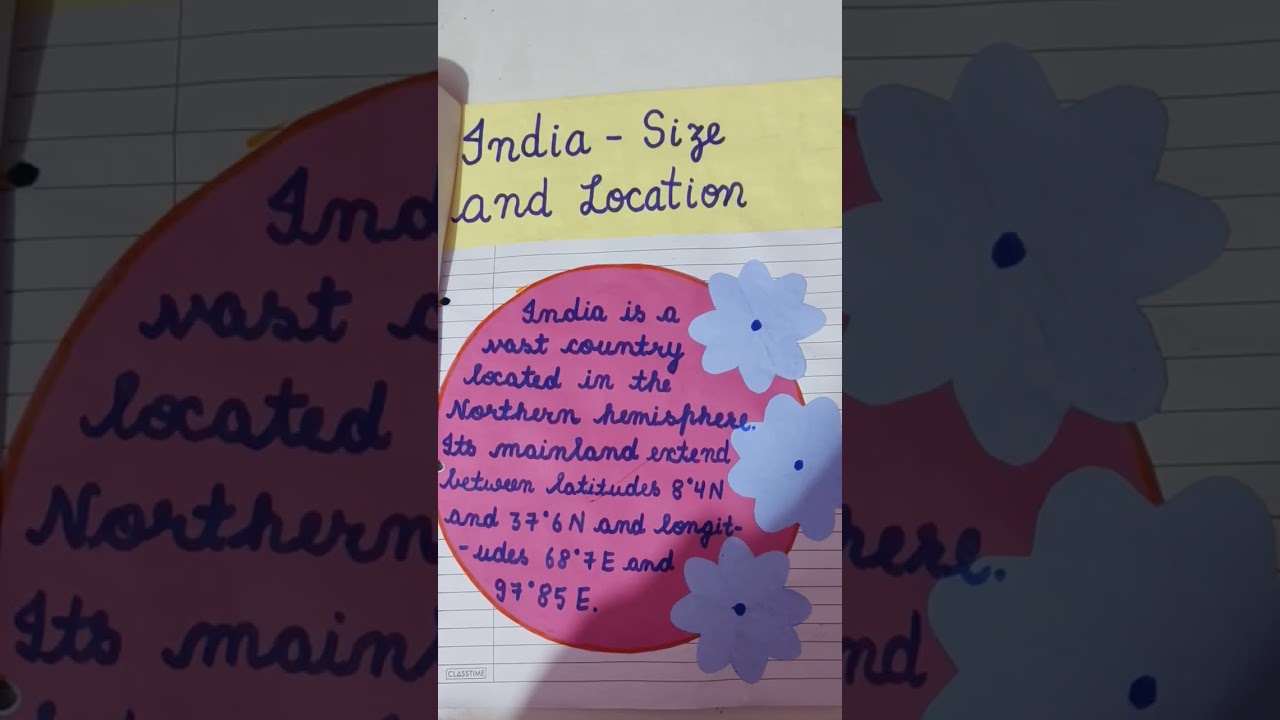 India - Size
and Location
India is a
vast country
located in the
Northern hemisphere.
Its mainland extend
between latitudes 8°4N
and 37°6N and longit-
-udes 68°7E and
97°85 E.
CLASSTIME